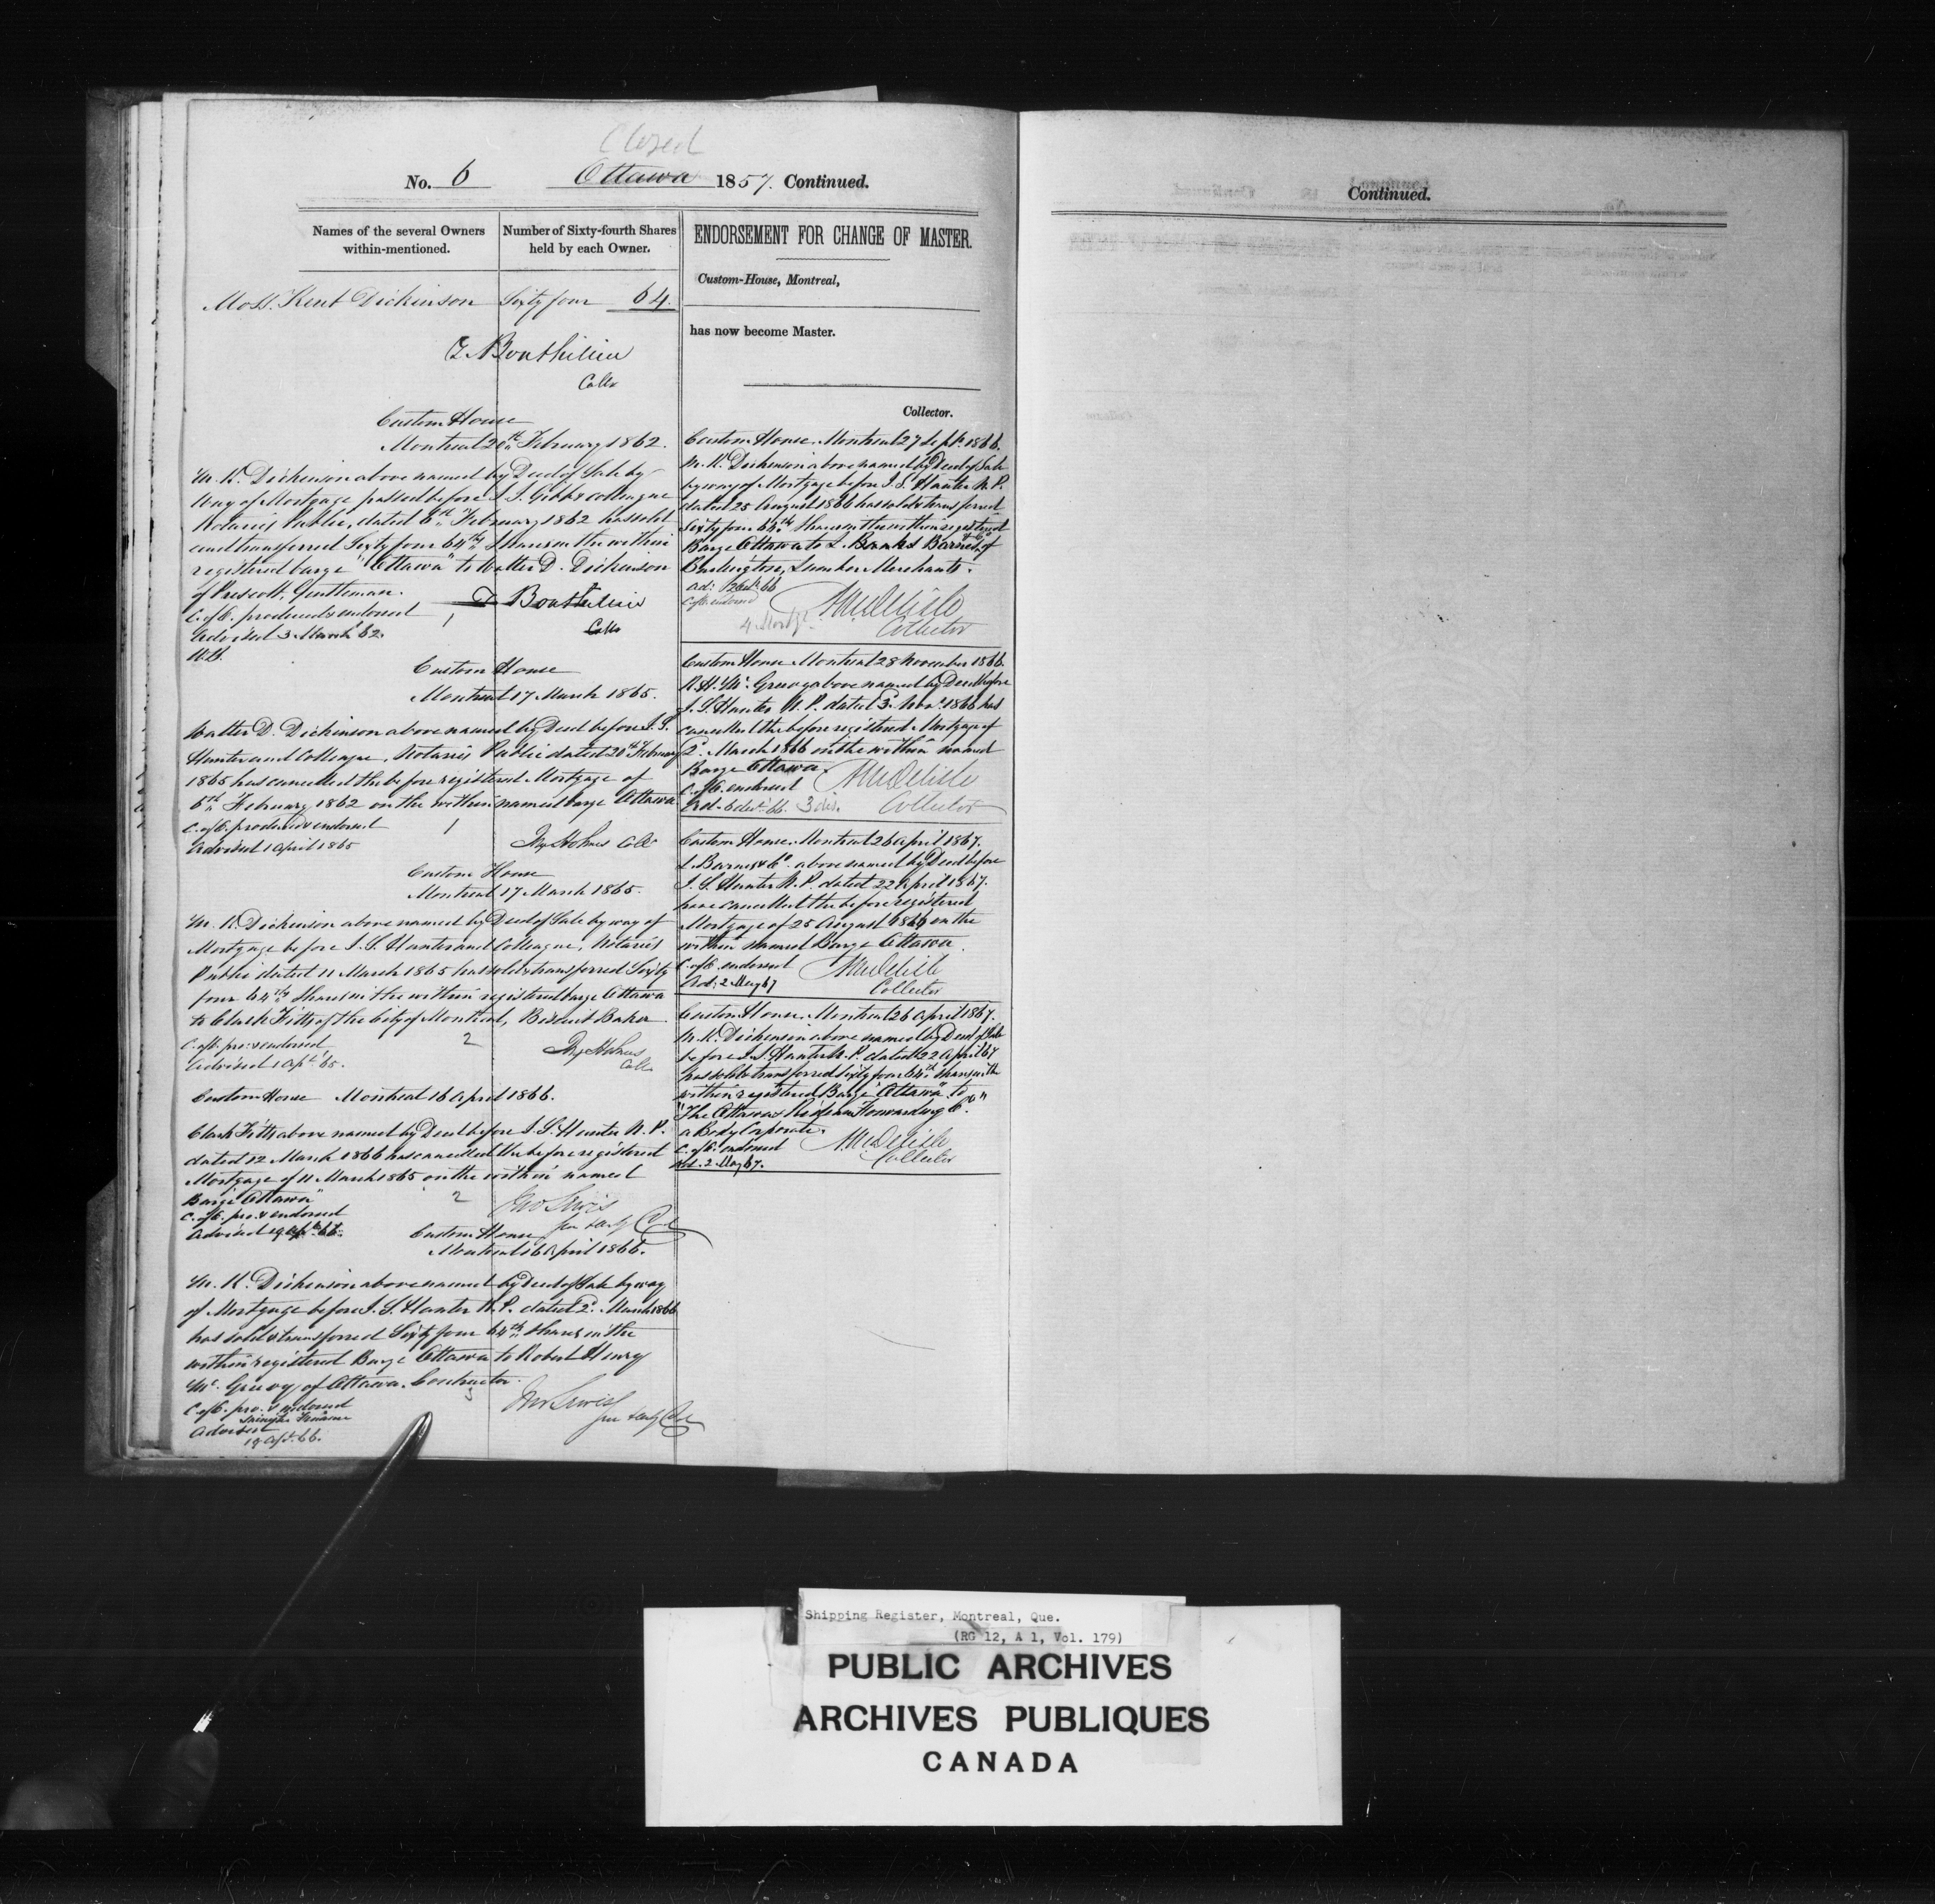 Closed
No. 6 Ottawa 1857. Continued.
Names of the several Owners within-mentioned.
Number of Sixty-fourth Shares held by each Owner.
Moss Kent Dickinson Sixty four 64.
Bouthillier
Collr
Custom House
Montreal 20th February 1862.
M. K. Dickinson above named by Deed of Sale by
Way of Mortgage passed before J. S. Gibb & colleague
Notaries Public, dated 6th February 1862 has sold
and transferred Sixty four 64ths Shares in the within
registered barge "Ottawa" to Walter D. Dickinson
of Prescott, Gentleman.
C. of O. produced & endorsed 1
Advised 3 March 62.
Bouthillier
Collr
Custom House
Montreal 17 March 1865.
Walter D. Dickinson above named by Deed before J. S.
Hunter and Colleague, Notaries Public dated 20th February
1865 has cancelled the before registered Mortgage of
6th February 1862 on the within named barge Ottawa
C. of O. produced & endorsed 1
Advised 1 April 1865
Holmes Collr
Custom House
Montreal 17 March 1865.
M. K. Dickinson above named by Deed of Sale by way of
Mortgage before J. S. Hunter and Colleague, Notaries
Public dated 11 March 1865 has sold & transferred Sixty
four 64ths Shares in the within registered barge Ottawa
to Clark Fitts of the City of Montreal, Biscuit Baker
C. of O. pro. & endorsed 2
Advised 1 Apl. 65.
Holmes
Collr
Custom House Montreal 16 April 1866.
Clark Fitts above named by Deed before J. S. Hunter N. P.
dated 12 March 1866 has cancelled the before registered
Mortgage of 11 March 1865 on the within named
Barge "Ottawa" 2
C. of O. pro. & endorsed
Advised 19 Apl. 66.
Jno Lewis
Custom House
Montreal 16 April 1866.
M. K. Dickinson above named by Deed of Sale by way
of Mortgage before J. S. Hunter N. P. dated 2d. March 1866
has sold & transferred Sixty four 64ths Shares in the
within registered Barge Ottawa to Robert Henry
Mc. Greevy of Ottawa, Contractor. 3
C. of O. pro. & endorsed
Advised
19 Apl. 66.
Jno Lewis
ENDORSEMENT FOR CHANGE OF MASTER.
Custom-House, Montreal,
has now become Master.
Collector.
Custom House. Montreal 27 Sept. 1866.
M. K. Dickinson above named by Deed of Sale
by way of Mortgage before J. S. Hunter N. P.
dated 25 August 1866 has sold & transferred
Sixty four 64ths Shares in the within registered
Barge Ottawa to L. Barnes & Co of
Burlington, Lumber Merchants.
C. of O. endorsed
4 Mortge
Delisle
Collector
Custom House Montreal 28 November 1866.
R. H. Mc. Greevy above named by Deed before
J. S. Hunter N. P. dated 3d. Novr. 1866 has
cancelled the before registered Mortgage of
2d. March 1866 on the within named
Barge Ottawa.
C. of O. endorsed
Ad. 6 Decr. 66. 3 dis.
Delisle
Collector
Custom House. Montreal 26 April 1867.
L. Barnes & Co. above named by Deed before
J. S. Hunter N. P. dated 22 April 1867.
have cancelled the before registered
Mortgage of 25 August 1866 on the
within named Barge Ottawa.
C. of O. endorsed
Ad. 2 May 67
Delisle
Collector
Custom House. Montreal 26 April 1867.
M. K. Dickinson above named by Deed of Sale
before J. S. Hunter N. P. dated 22 April 67
has sold & transferred Sixty four 64th Shares in the
within registered Barge "Ottawa" to
"The Ottawa & Rideau Forwarding Co."
a Body Corporate.
C. of O. endorsed
Ad. 2 May 67.
Delisle
Collector
Continued.
Shipping Register, Montreal, Que.
(RG 12, A 1, Vol. 179)
PUBLIC ARCHIVES
ARCHIVES PUBLIQUES
CANADA